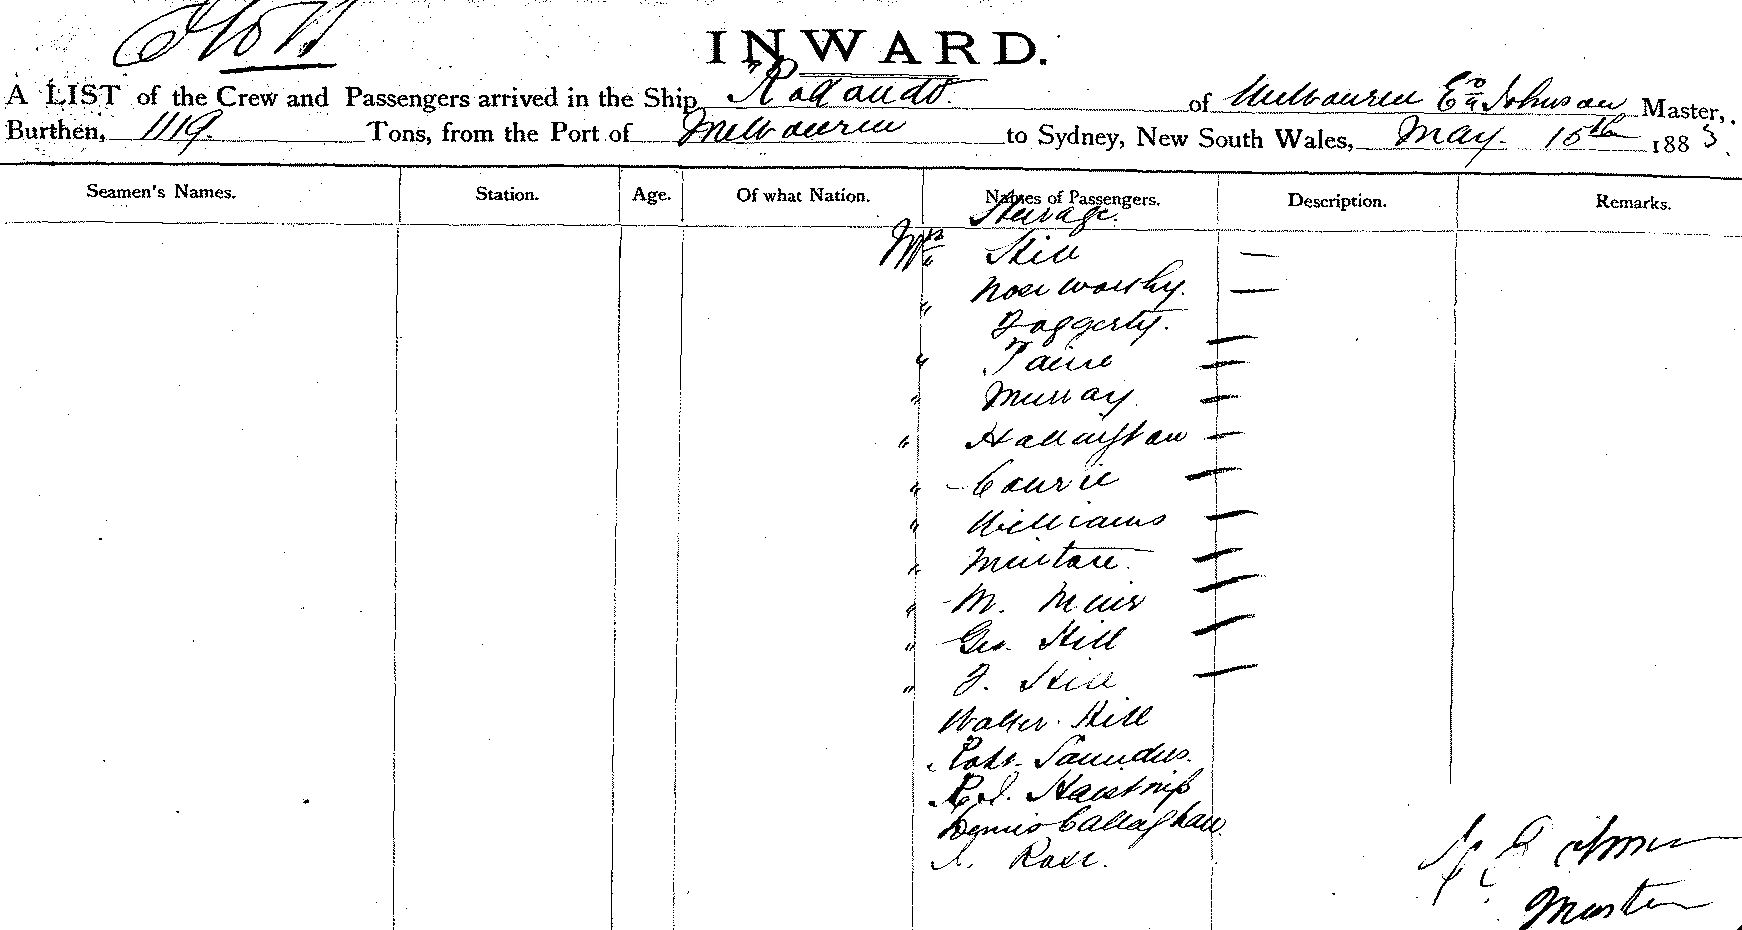 INWARD.
A LIST of the Crew and Passengers arrived in the Ship Rodondo of Melbourne Johnson Master,
Burthen, 1119. Tons, from the Port of Melbourne to Sydney, New South Wales, May. 15th 1883.
Seamen's Names. Station. Age. Of what Nation. Names of Passengers. Description. Remarks.
Steerage.
Mrs Hill —
" Noseworthy. —
Foggerty. —
" Paine —
" Murray —
" —
" Courie —
" Williams —
" —
" M. Muir —
" Geo. Hill —
" J. Hill —
Walter Hill
Robt. Saunders.
Dennis Callaghan.
Rose.
Master